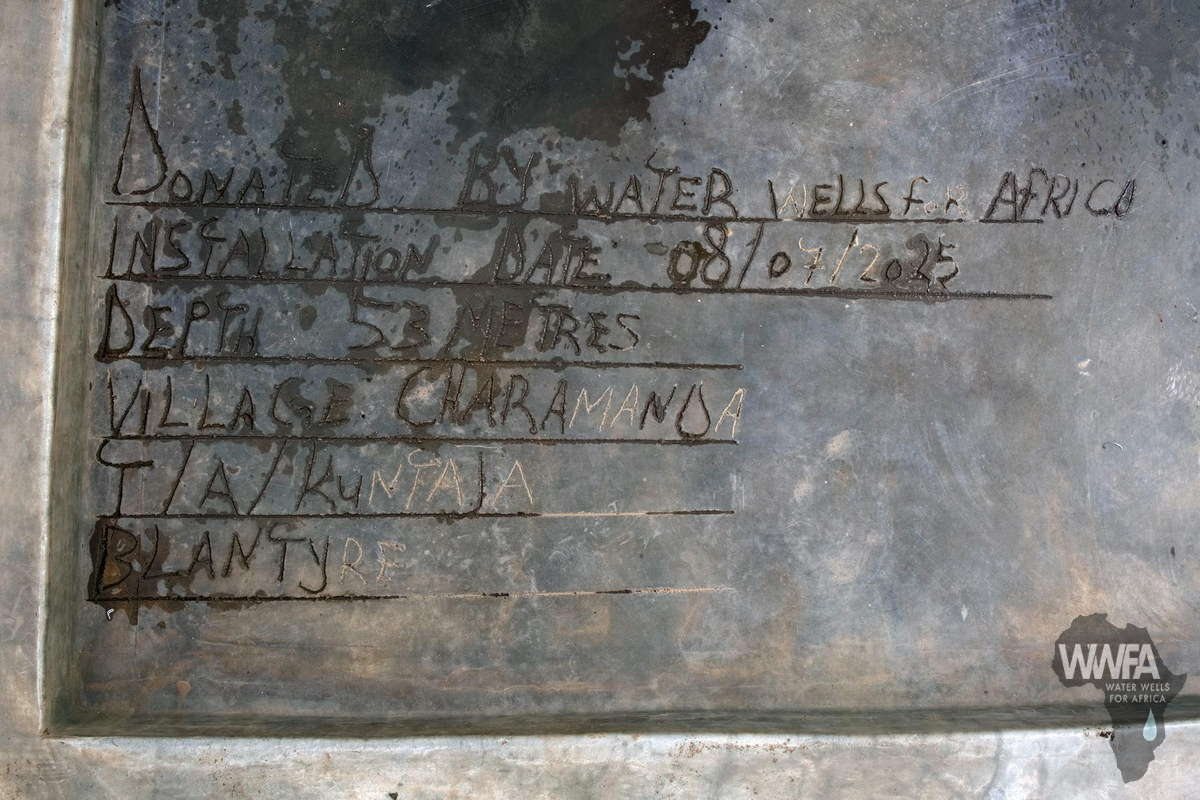 DONATED BY WATER WELLS FOR AFRICA
INSTALLATION DATE 08/07/2025
DEPTH 53 METRES
VILLAGE CHARAMANDA
T/A/KUNTAJA
BLANTYRE
WWFA
WATER WELLS
FOR AFRICA